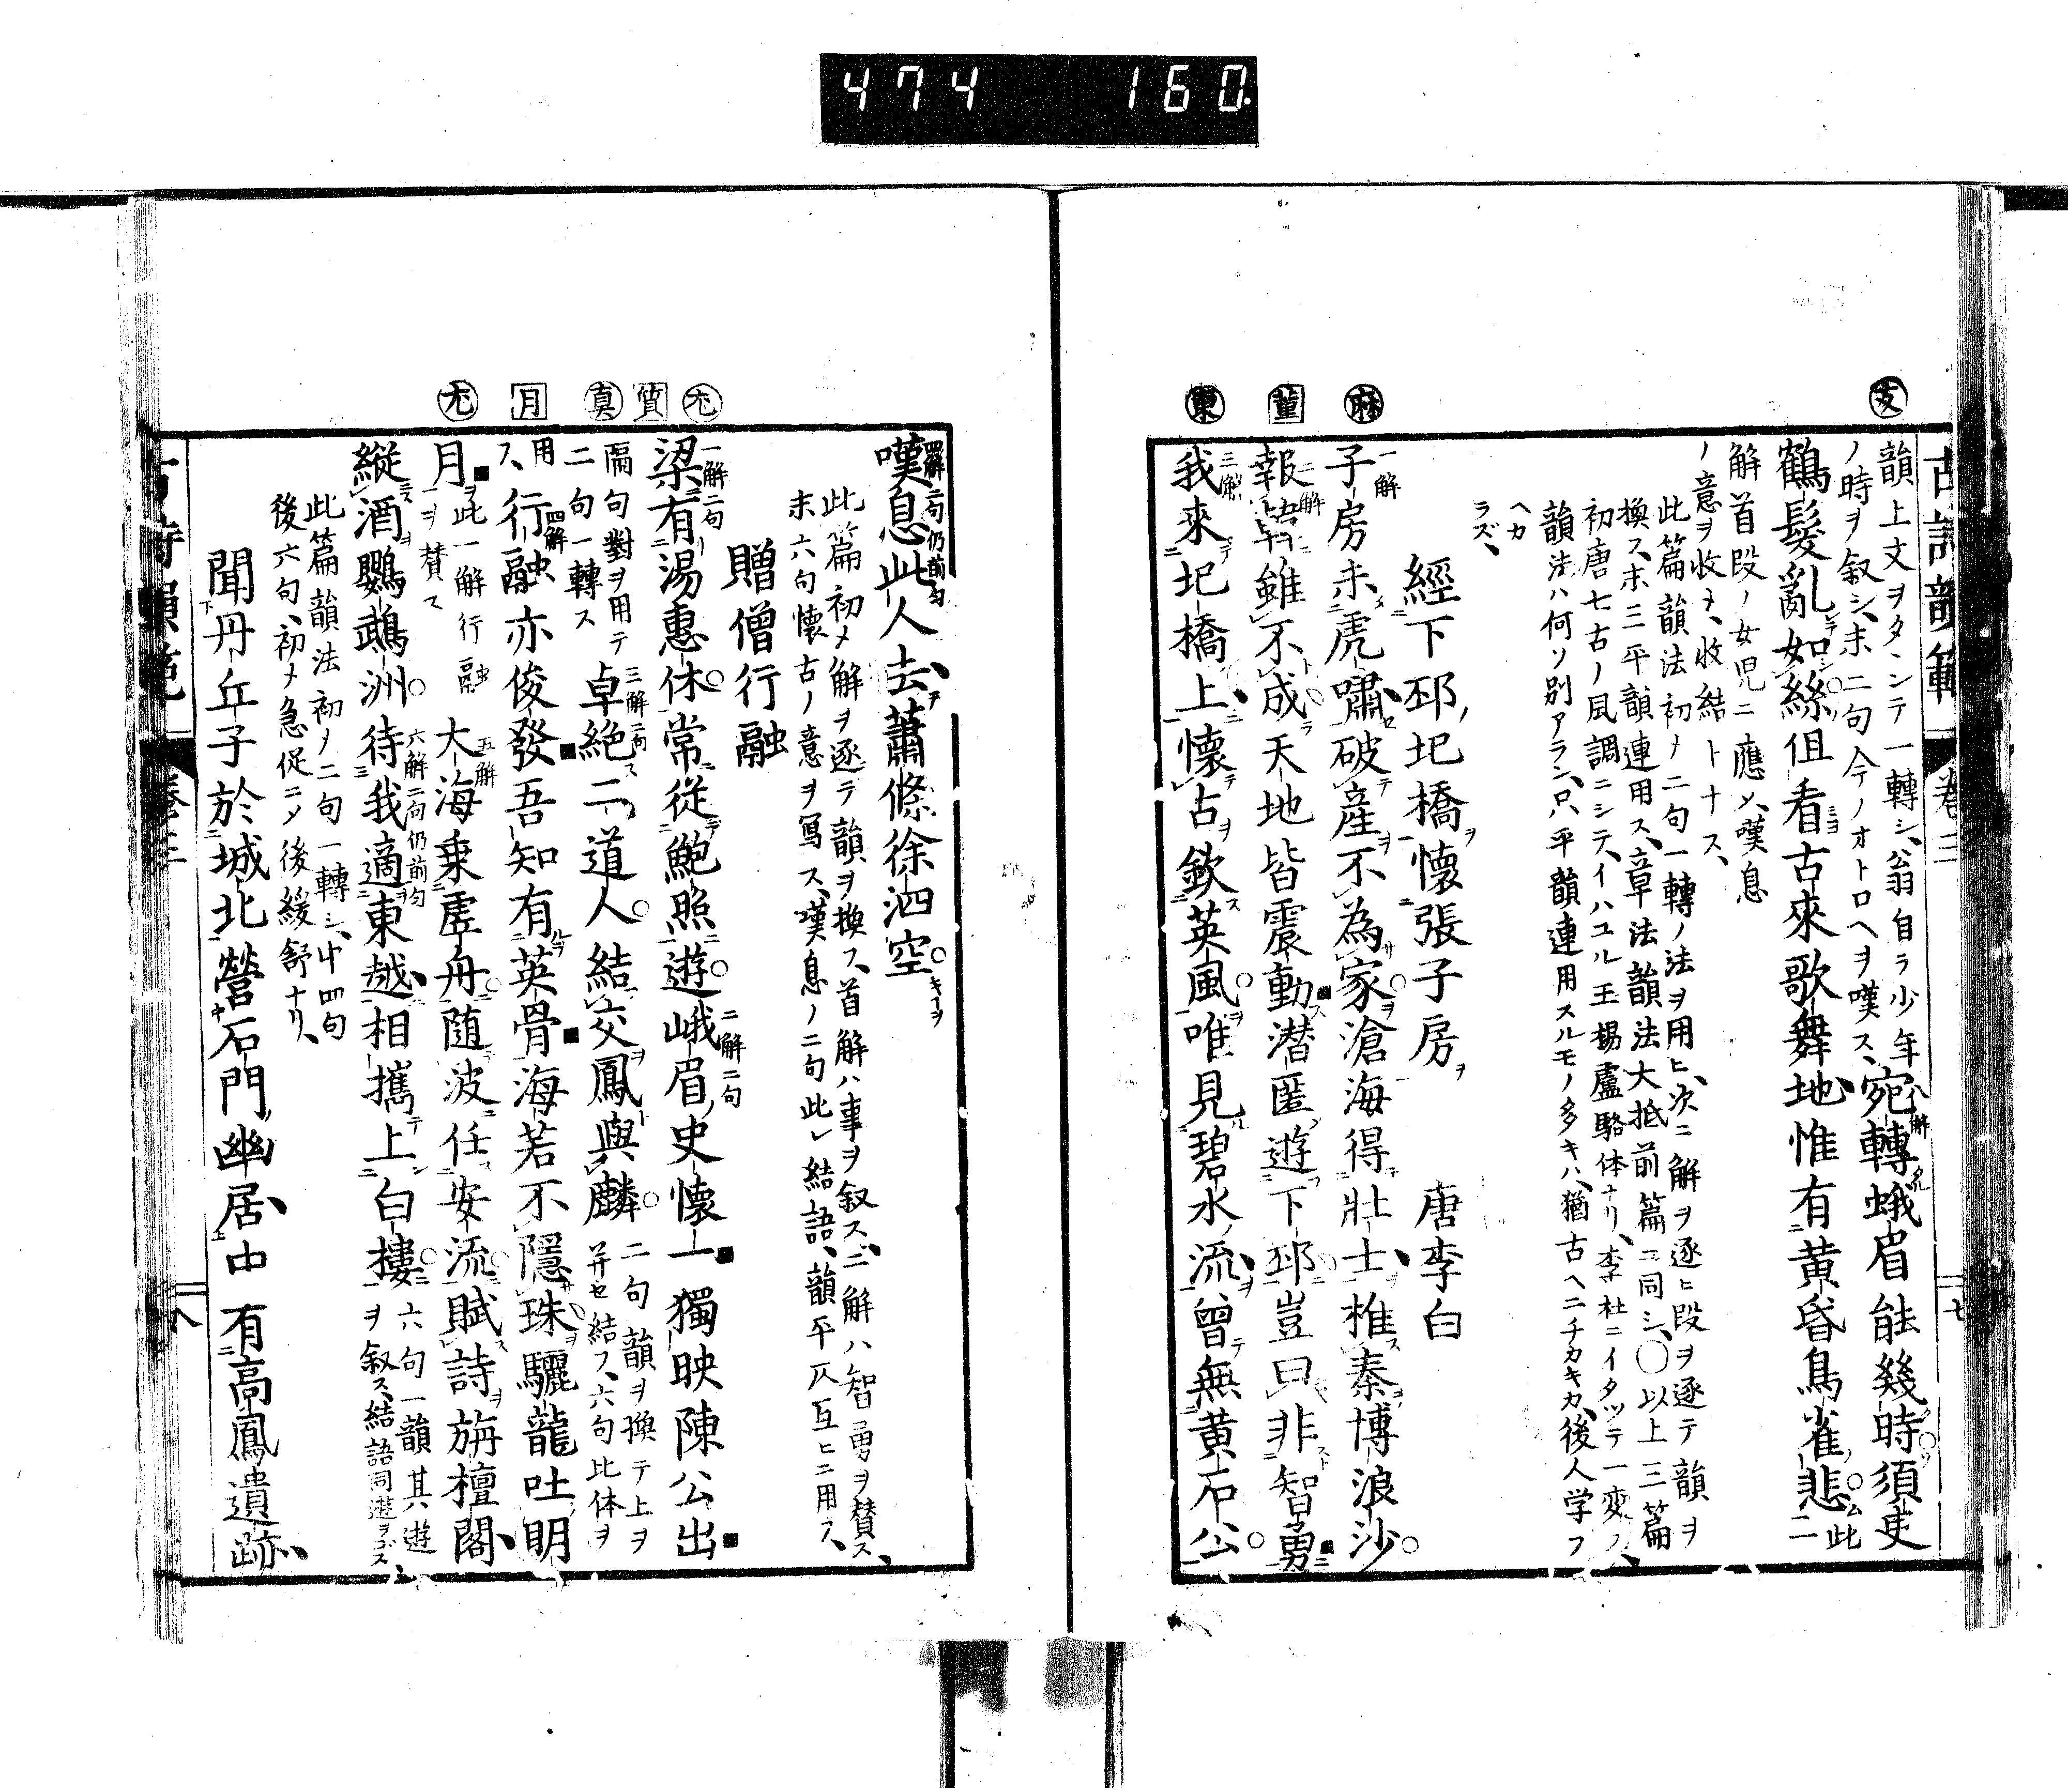 474 160.
古詩韻範 卷二 七
支
韻上文ヲタンテ一轉シ、翁自ラ少年
ノ時ヲ叙シ、末二句今ノオトロヘヲ嘆ス、
八解
宛轉蛾眉能幾時須臾
鶴髮亂如絲但看古來歌舞地惟有黄昏鳥雀悲
此二
解首段ノ女児ニ應メ、嘆息
ノ意ヲ收ヽ、收結トナス、
此篇韻法初メ二句一轉ノ法ヲ用ヒ、次ニ解ヲ逐ヒ段ヲ逐テ韻ヲ
換ス、末三平韻連用ス、章法韻法大抵前篇ニ同シ、〇以上三篇
初唐七古ノ風調ニシテ、イハユル王楊盧駱体ナリ、李杜ニイタツテ一変ス、
韻法ハ何ソ別アラン、只平韻連用スルモノ多キハ、猶古ヘニチカキカ、後人学フ
ヘカ
ラズ、
經下邳圯橋懷張子房 唐李白
麻
一解
子房未虎嘯破産不為家滄海得壯士椎秦博浪沙
董
二解
報韓雖不成天地皆震動潜匿遊下邳豈曰非智勇
東
三解
我來圯橋上懷古欽英風唯見碧水流曾無黄石公
四解二句仍前匀
嘆息此人去蕭條徐泗空
此篇初メ解ヲ逐テ韻ヲ換フ、首解ハ事ヲ叙ス、二解ハ智勇ヲ賛ス、
末六句懐古ノ意ヲ写ス、嘆息ノ二句此レ結語、韻平仄互ヒニ用フ、
贈僧行融
尤 質
一解二句
梁有湯惠休常從鮑照遊
二解二句
峨眉史懷一獨映陳公出
真
隔句對ヲ用テ
二句一轉ス
三解二句
卓絶二道人結交鳳與麟
二句韻ヲ換テ上ヲ
并セ結フ、六句比体ヲ
月
用
ス、
四解
行融亦俊發吾知有英骨海若不隱珠驪龍吐明
尤
月
ヲ此一解行融
一ヲ賛ス
五解
大海乗虚舟随波任安流賦詩旃檀閣
縦酒鸚鵡洲
六解二句仍前匀
待我適東越相攜上白樓
六句一韻其遊
ヲ叙ス、結語同遊ヲ
此篇韻法初ノ二句一轉シ、中四句
後六句、初メ急促ニメ後緩舒ナリ、
聞丹丘子於城北營石門幽居中有高鳳遺跡
古詩韻範 卷二 八